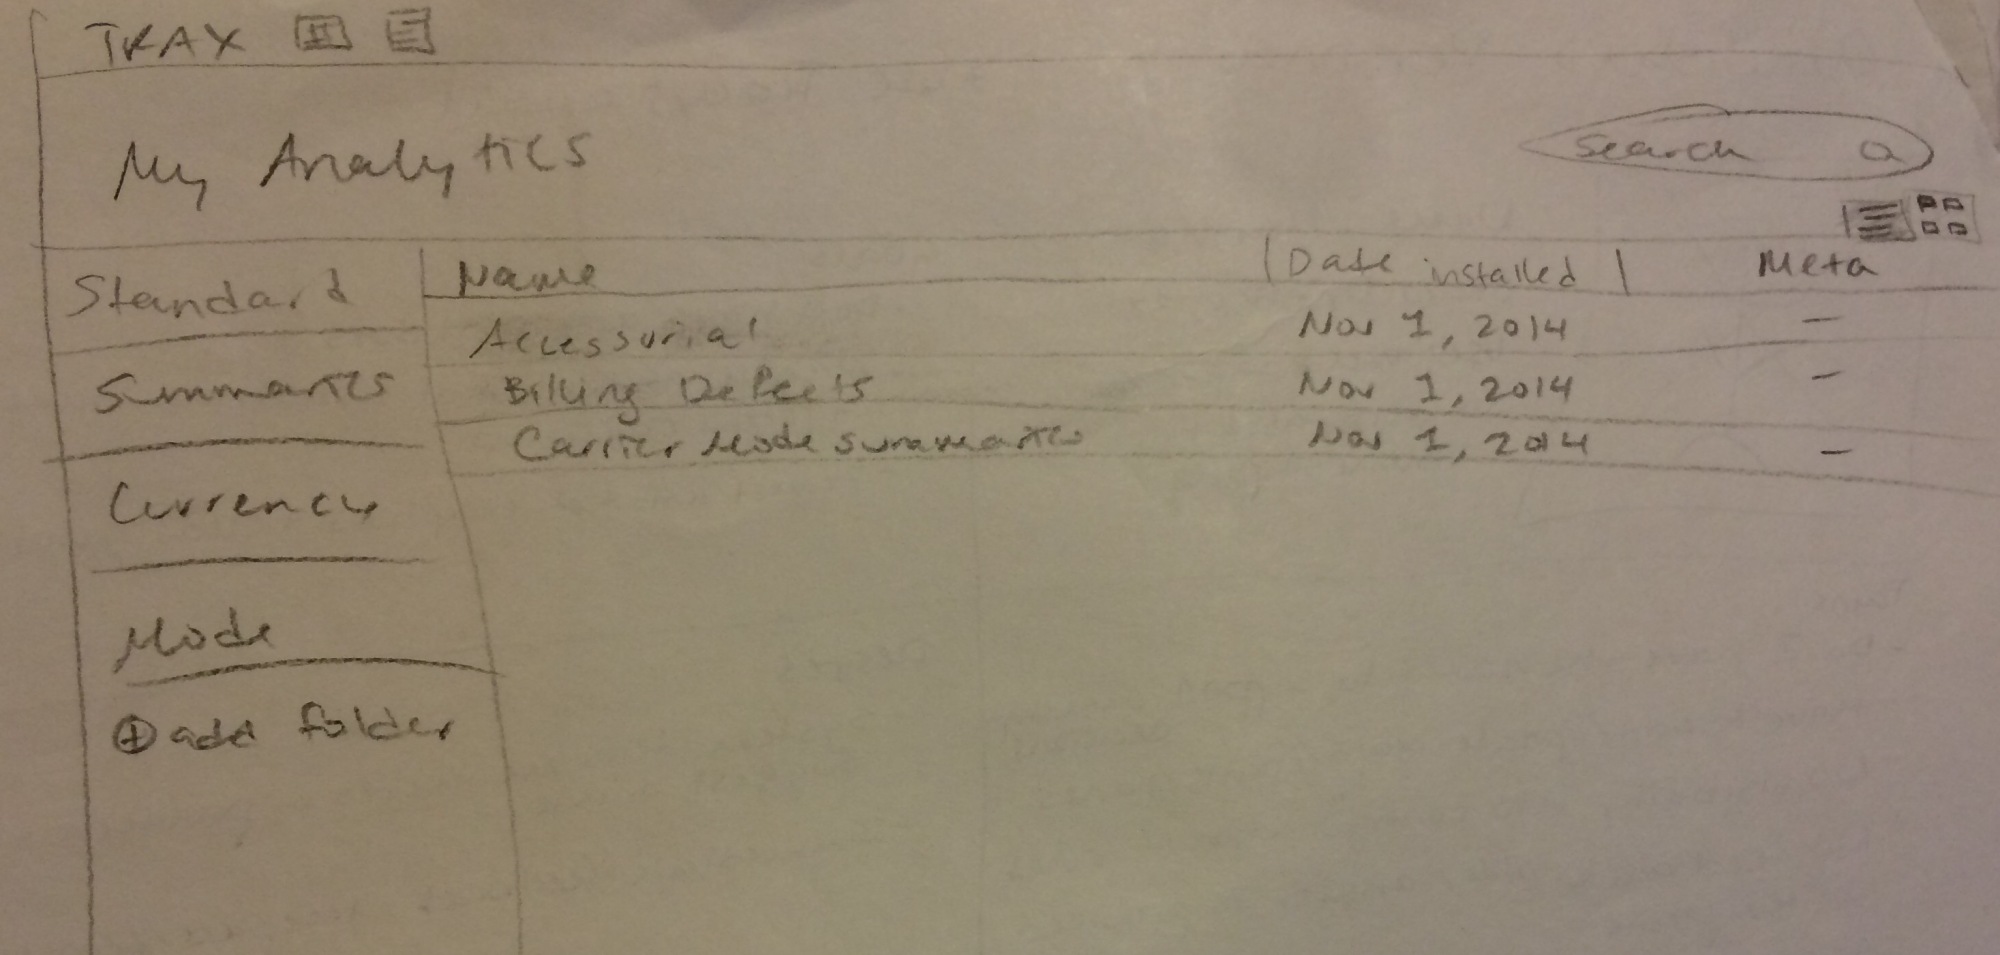 TRAX
My Analytics
Search
Standard
Name
Date installed
Meta
Accessorial
Nov 1, 2014
–
Summaries
Billing Defects
Nov 1, 2014
–
Carrier Mode summaries
Nov 1, 2014
–
Currency
Mode
+ add folder